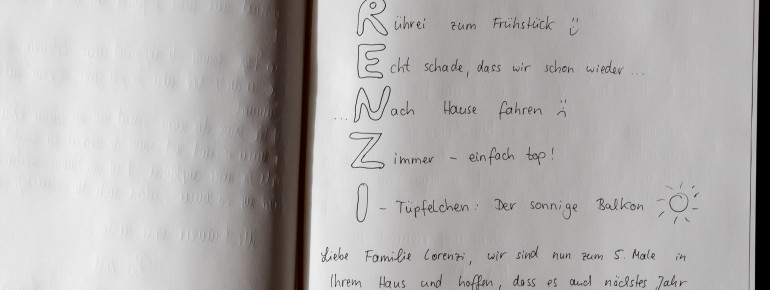 Rührei zum Frühstück :)
Echt schade, dass wir schon wieder ...
... Nach Hause fahren :(
Zimmer - einfach top!
I - Tüpfelchen: Der sonnige Balkon
Liebe Familie Lorenzi, wir sind nun zum 5. Male in
Ihrem Haus und hoffen, dass es auch nächstes Jahr